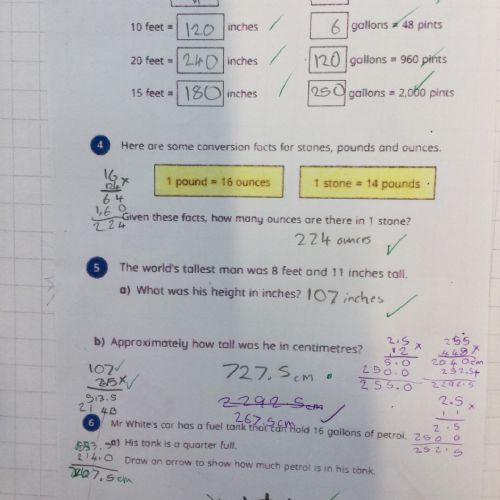 10 feet = 120 inches
6 gallons = 48 pints
20 feet = 240 inches
120 gallons = 960 pints
15 feet = 180 inches
250 gallons = 2,000 pints
4 Here are some conversion facts for stones, pounds and ounces.
1 pound = 16 ounces
1 stone = 14 pounds
16
14 x
64
160
224
Given these facts, how many ounces are there in 1 stone?
224 ounces
5 The world's tallest man was 8 feet and 11 inches tall.
a) What was his height in inches? 107 inches
b) Approximately how tall was he in centimetres?
727.5cm
2292.5cm
267.5cm
107
2.5 x
53.5
214.0
267.5cm
2.5
12 x
5.0
250.0
255.0
255
x
2040cm
2292.5
2.5
11 x
2.5
250 0
252.5
6 Mr White's car has a fuel tank that can hold 16 gallons of petrol.
a) His tank is a quarter full.
Draw an arrow to show how much petrol is in his tank.